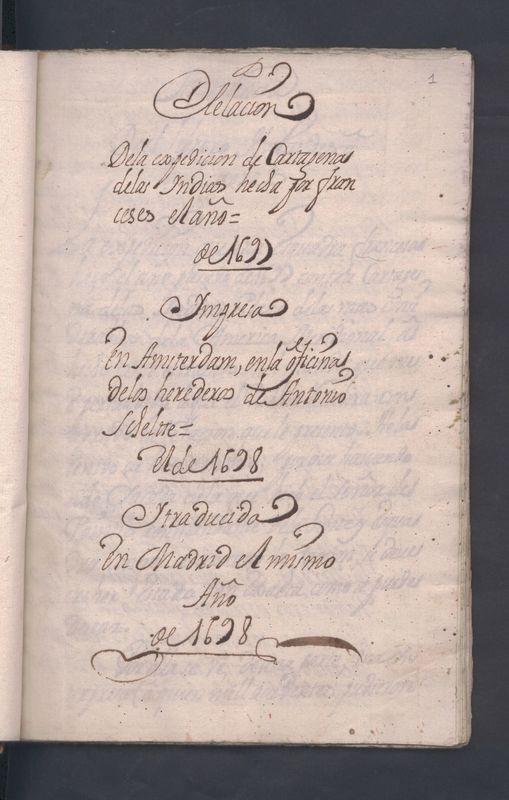 1
Relacion
Dela expedicion de Cartagena
delas Indias hecha por fran
ceses el año=
de 1697
Impresa
En Amsterdam, en la oficina
delos herederos de Antonio
Schelte=
el de 1698
I traducida
En Madrid el mismo
Año
de 1698